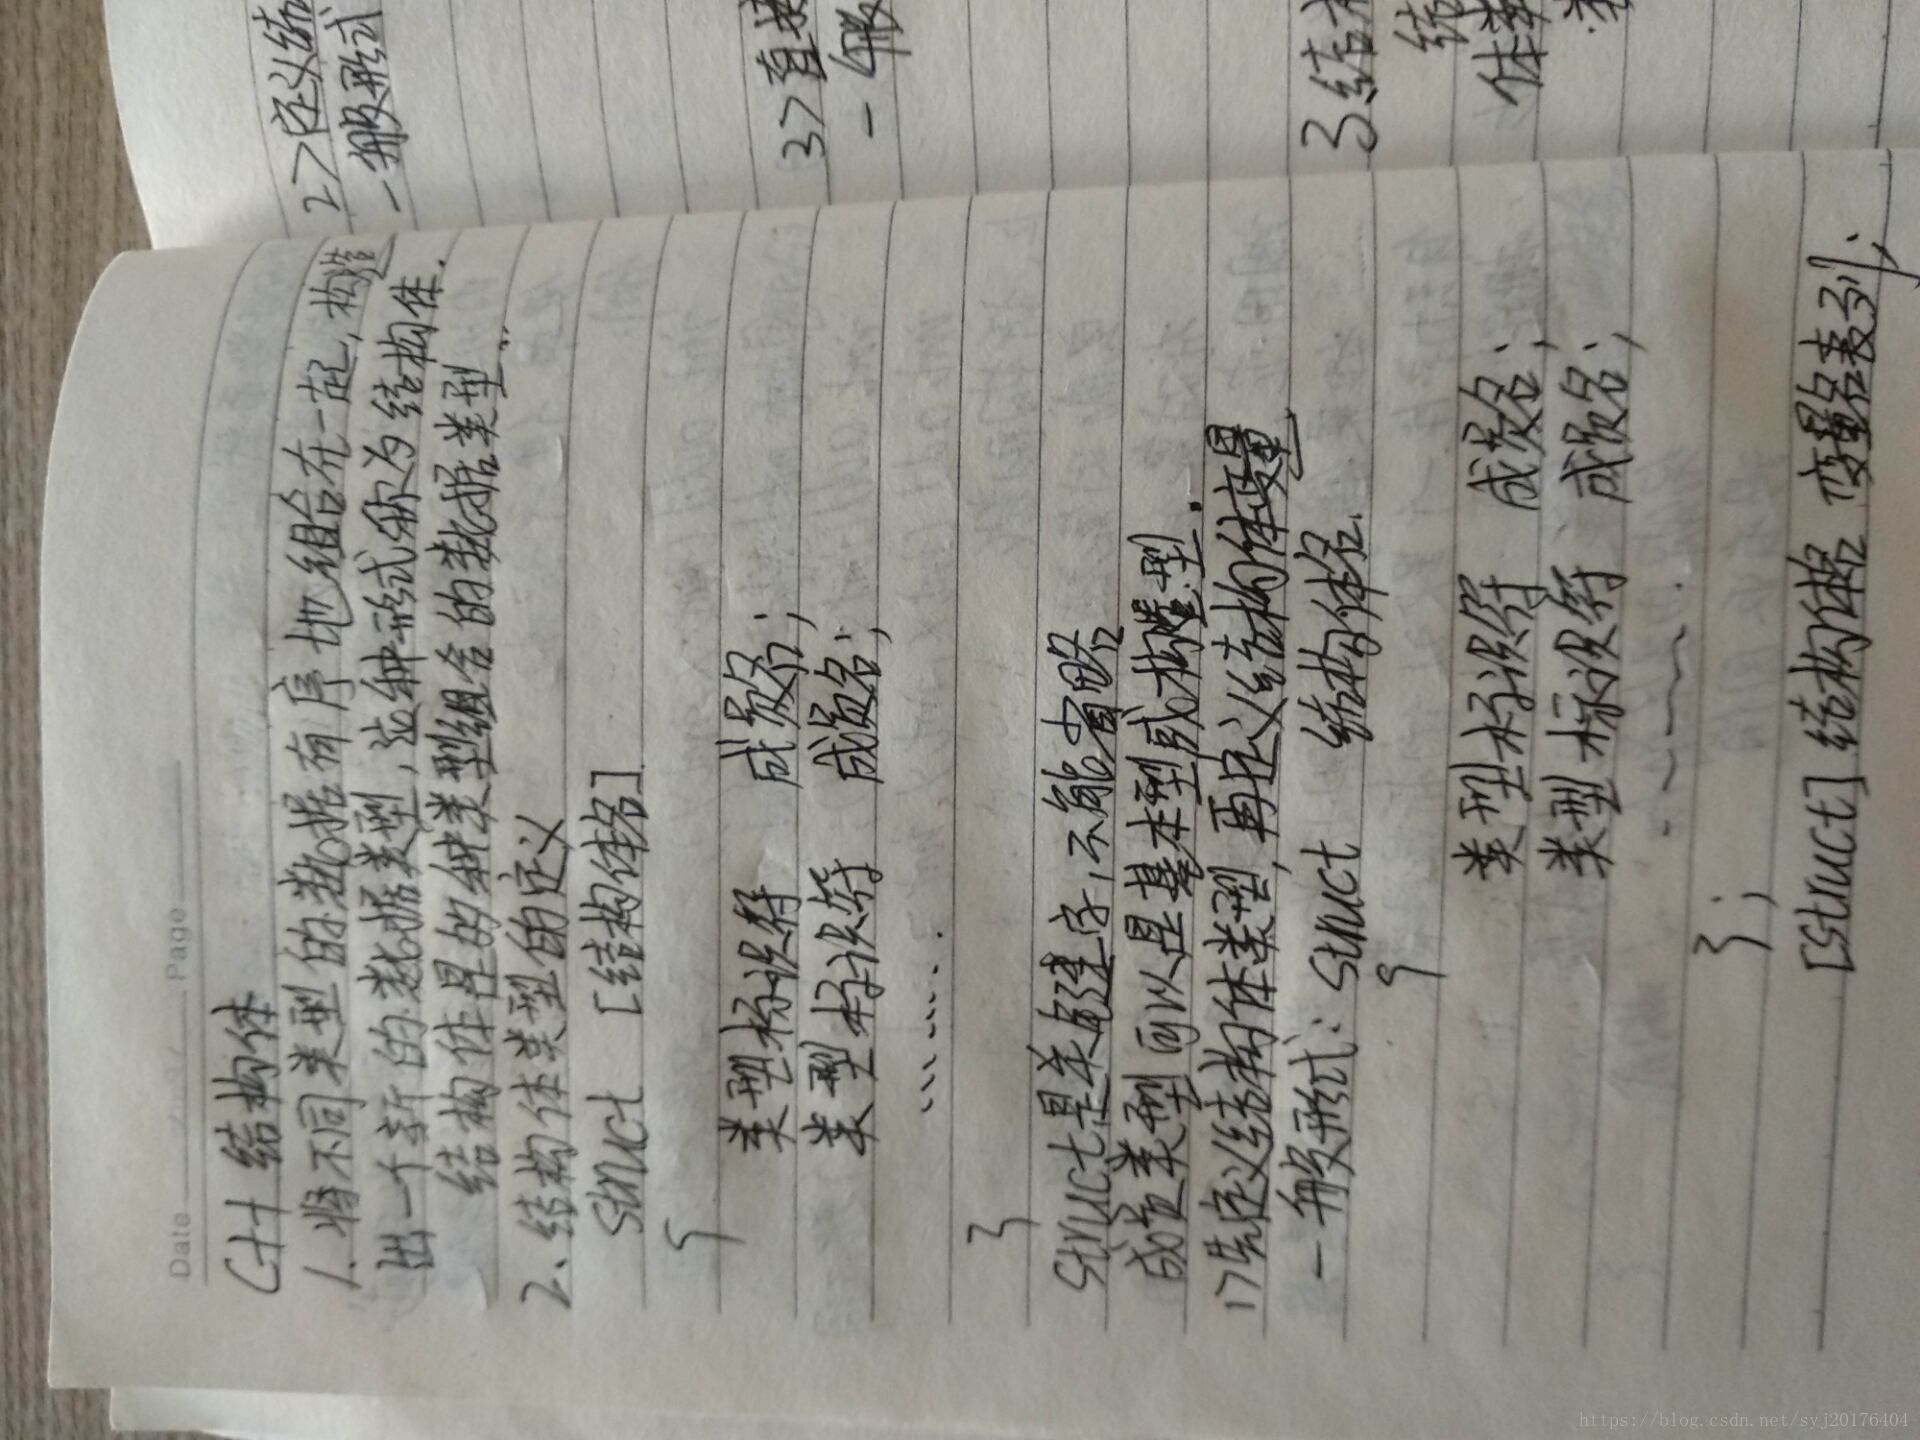 Date
Page
C++ 结构体
1、将不同类型的数据有序地组合在一起,构造
出一个新的数据类型,这种形式称为结构体.
结构体是多种类型组合的数据类型
2、结构体类型的定义
struct [结构体名]
{
类型标识符 成员名;
类型标识符 成员名;
......
}
struct是关键字,不能省略
成员类型可以是基本型或构造型.
1>先定义结构体类型,再定义结构体变量
一般形式: struct 结构体名
{
类型标识符 成员名;
类型标识符 成员名;
......
};
[struct] 结构体名 变量名表列;
2>定义结
一般形式
3>直接
一般
3.结
结
体
https://blog.csdn.net/syj20176404